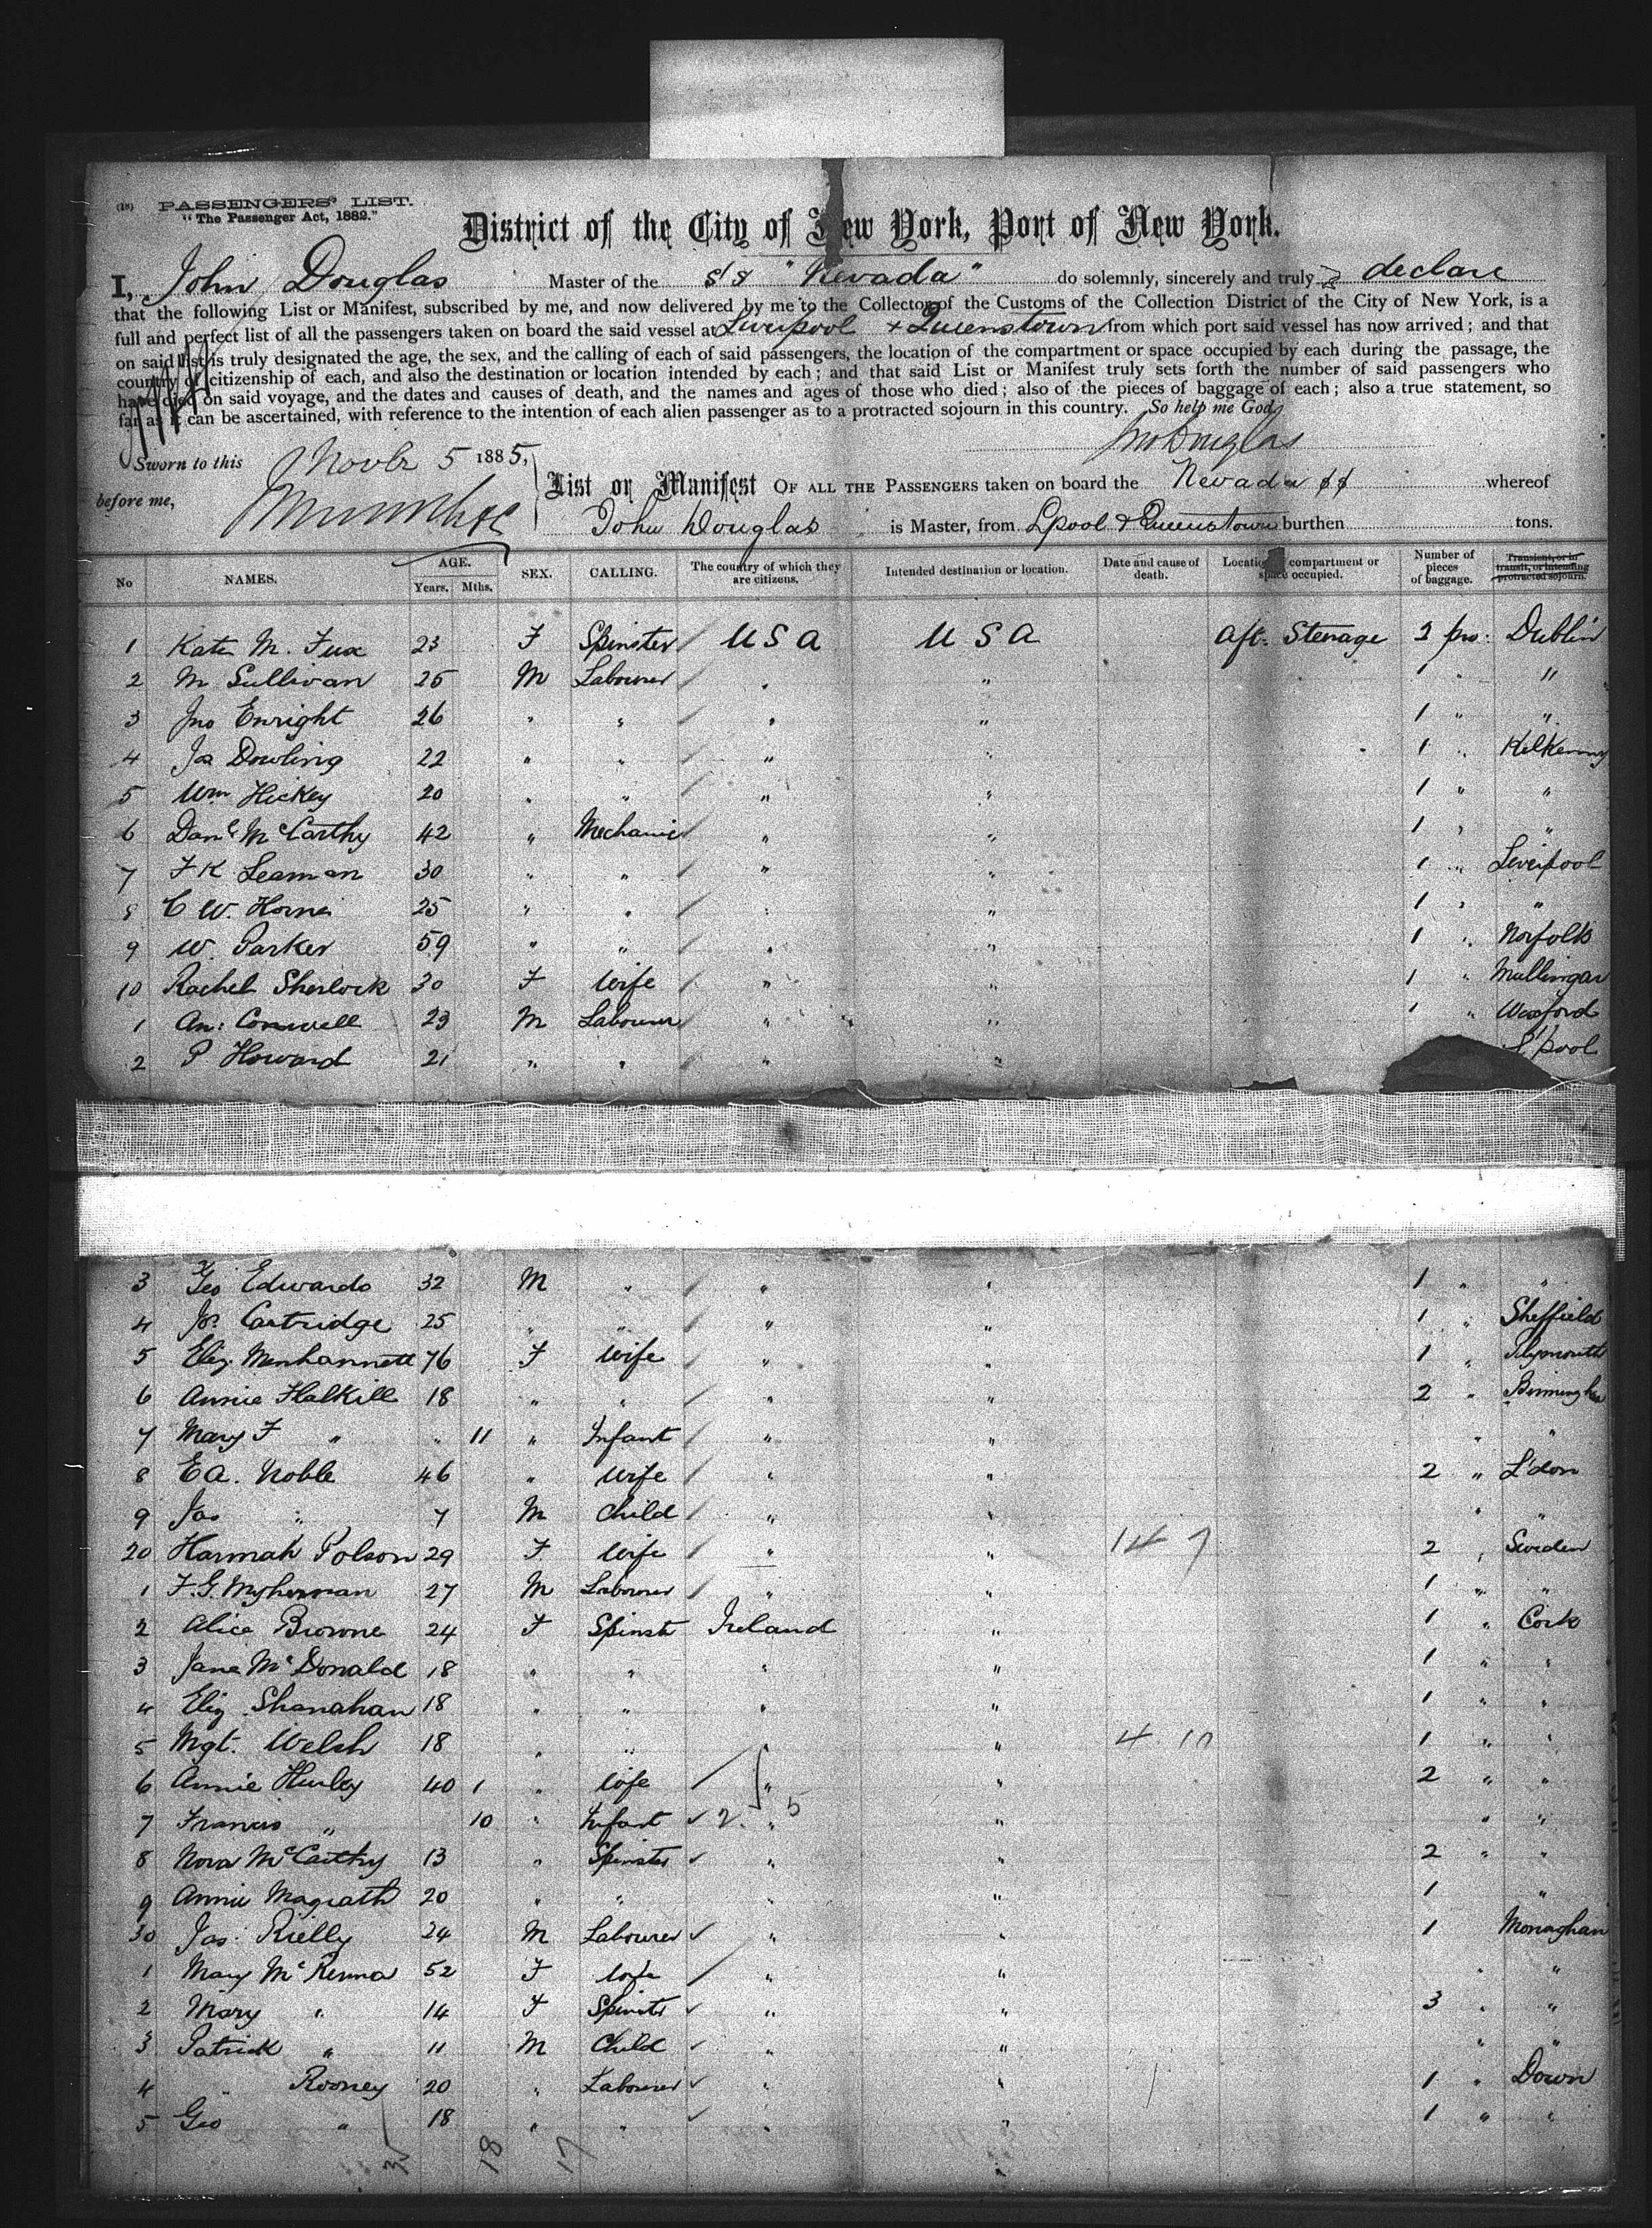 (18) PASSENGERS' LIST.
"The Passenger Act, 1882."
District of the City of New York, Port of New York.
I, John Douglas Master of the S/S "Nevada" do solemnly, sincerely and truly declare
that the following List or Manifest, subscribed by me, and now delivered by me to the Collector of the Customs of the Collection District of the City of New York, is a
full and perfect list of all the passengers taken on board the said vessel at Liverpool + Queenstown from which port said vessel has now arrived; and that
on said list is truly designated the age, the sex, and the calling of each of said passengers, the location of the compartment or space occupied by each during the passage, the
country of citizenship of each, and also the destination or location intended by each; and that said List or Manifest truly sets forth the number of said passengers who
have died on said voyage, and the dates and causes of death, and the names and ages of those who died; also of the pieces of baggage of each; also a true statement, so
far as it can be ascertained, with reference to the intention of each alien passenger as to a protracted sojourn in this country. So help me God,
Jno Douglas
Sworn to this Novbr 5 1885,
before me,
List or Manifest OF ALL THE PASSENGERS taken on board the Nevada SS whereof
John Douglas is Master, from Lpool & Queenstown burthen tons.
No NAMES. AGE. Years. Mths. SEX. CALLING. The country of which they are citizens. Intended destination or location. Date and cause of death. Location of compartment or space occupied. Number of pieces of baggage. Transient, or in transit, or intending protracted sojourn.
1 Kate M. Fux 23 F Spinster USA USA Aft. Steerage 2 ps: Dublin
2 M Sullivan 25 M Labourer " " 1 " "
3 Jno Enright 26 " " " " 1 " "
4 Js Dowling 22 " " " " 1 " Kilkenny
5 Wm Hickey 20 " " " " 1 " "
6 Danl McCarthy 42 " Mechanic " " 1 " "
7 F K Leaman 30 " " " " 1 " Liverpool
8 C W. Horne 25 " " " " 1 " "
9 W. Parker 59 " " " " 1 " Norfolk
10 Rachel Sherlock 30 F Wife " " 1 " Mullingar
1 An: Conwell 23 M Labourer " " 1 " Wexford
2 P Howard 21 " " " " L'pool
3 Geo Edwards 32 M " " " 1 " "
4 Js. Cartridge 25 " " " " 1 " Sheffield
5 Eliz. Menhannett 76 F Wife " " 1 " Plymouth
6 Annie Halkill 18 " " " " 2 " Birmingham
7 Mary F " " 11 " Infant " " " "
8 E A. Noble 46 " Wife " " 2 " L'don
9 Jas " 7 M Child " " " "
20 Hannah Polson 29 F Wife " " 14 7 2 " Sweden
1 F. G. 27 M Labourer " " 1 " "
2 Alice Browne 24 F Spinstr Ireland " 1 " Cork
3 Jane McDonald 18 " " " " 1 " "
4 Eliz Shanahan 18 " " " " 1 " "
5 Mgt. Welsh 18 " " " " 4 10 1 " "
6 Annie Hurley 40 1 " Wife " " 2 " "
7 Francis " 10 " Infant 2 " 5 " " "
8 Nora McCarthy 13 " Spinster " " 2 " "
9 Annie Magrath 20 " " " " 1 "
30 Jas. Rielly 24 M Labourer " " 1 Monaghan
1 Mary McKenna 52 F Wife " " " "
2 Mary " 14 F Spinstr " " 3 " "
3 Patrick " 11 M Child " " " "
4 " Rooney 20 " Labourer " " 1 " Down
5 Geo " 18 " " " " 1 " "
18 17